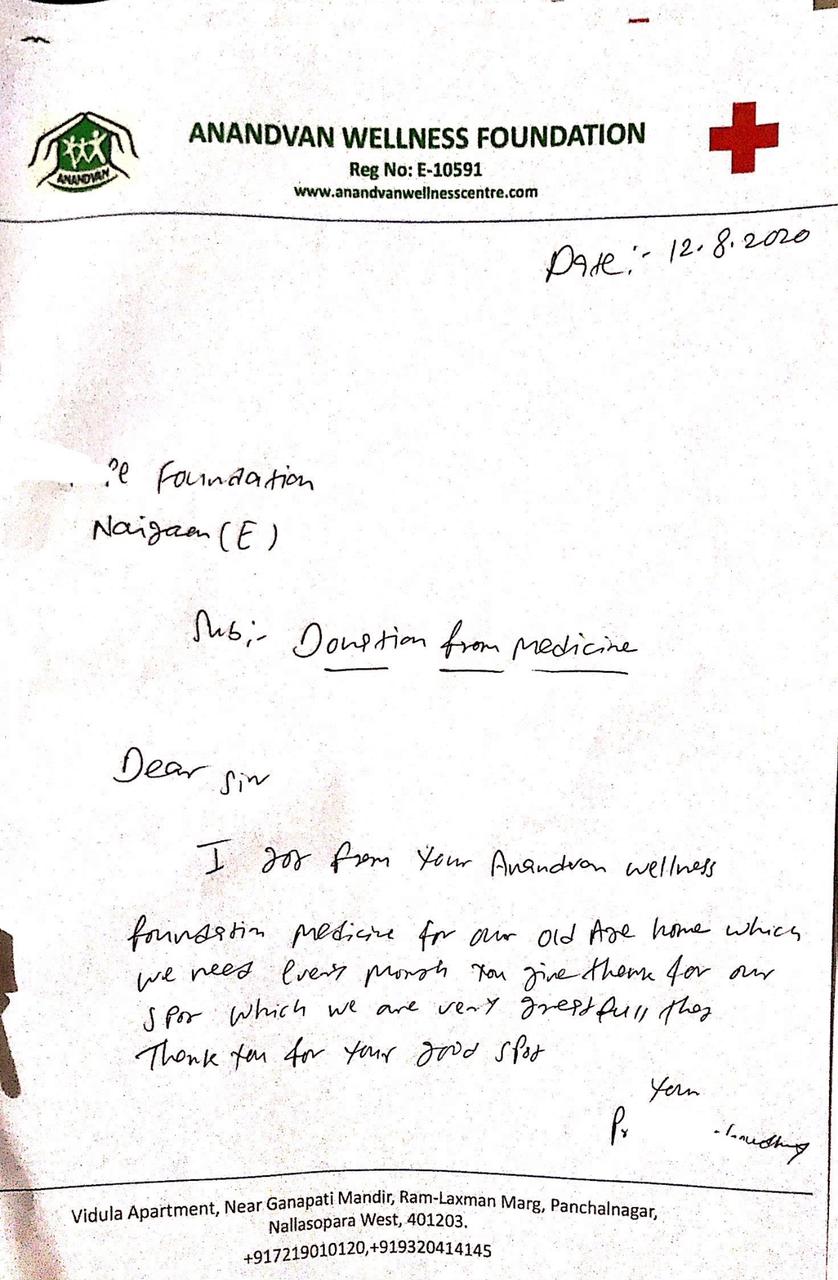 ANANDVAN
ANANDVAN WELLNESS FOUNDATION
Reg No: E-10591
www.anandvanwellnesscentre.com
Date:- 12.8.2020
Foundation
Naigaon (E)
Sub:- Donation from medicine
Dear Sir
I got from your Anandvan wellness
foundation medicine for our old Age home which
we need every month you give thank for our
spot which we are very greatfull they
Thank you for your good spot
Your
Vidula Apartment, Near Ganapati Mandir, Ram-Laxman Marg, Panchalnagar,
Nallasopara West, 401203.
+917219010120,+919320414145